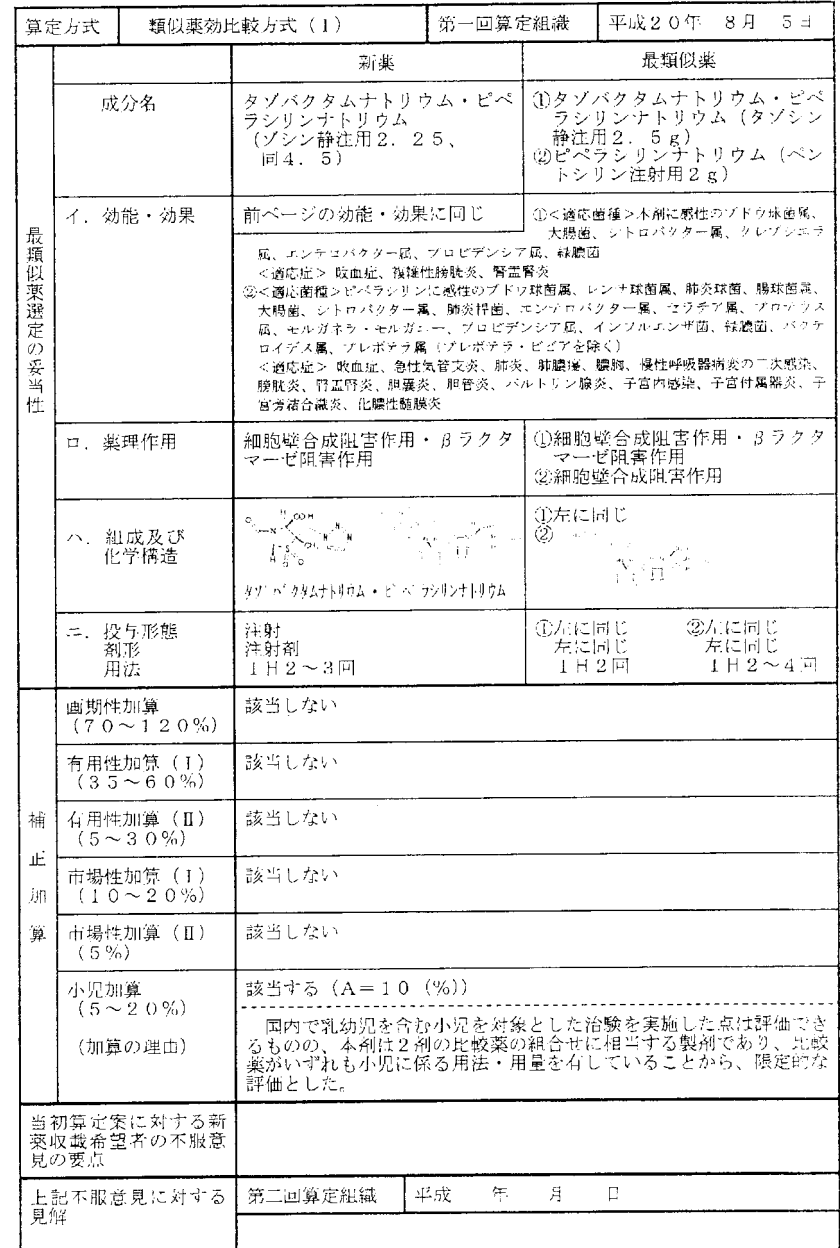 算定方式 類似薬効比較方式(1) 第一回算定組織 平成20年 8月 5日
新薬 最類似薬
最類似薬選定の妥当性
成分名
タゾバクタムナトリウム・ピペ
ラシリンナトリウム
(ゾシン静注用2.25、
同4.5)
①タゾバクタムナトリウム・ピペ
ラシリンナトリウム(タゾシン
静注用2.5g)
②ピペラシリンナトリウム(ペン
トシリン注射用2g)
イ.効能・効果
前ページの効能・効果に同じ
①<適応菌種>本剤に感性のブドウ球菌属、
大腸菌、シトロバクター属、クレブシエラ
属、エンテロバクター属、プロビデンシア属、緑膿菌
<適応症> 敗血症、複雑性膀胱炎、腎盂腎炎
②<適応菌種>ピペラシリンに感性のブドウ球菌属、レンサ球菌属、肺炎球菌、腸球菌属、
大腸菌、シトロバクター属、肺炎桿菌、エンテロバクター属、セラチア属、プロテウス
属、モルガネラ・モルガニー、プロビデンシア属、インフルエンザ菌、緑膿菌、バクテ
ロイデス属、プレボテラ属(プレボテラ・ビビアを除く)
<適応症> 敗血症、急性気管支炎、肺炎、肺膿瘍、膿胸、慢性呼吸器病変の二次感染、
膀胱炎、腎盂腎炎、胆嚢炎、胆管炎、バルトリン腺炎、子宮内感染、子宮付属器炎、子
宮旁結合織炎、化膿性髄膜炎
ロ.薬理作用
細胞壁合成阻害作用・βラクタ
マーゼ阻害作用
①細胞壁合成阻害作用・βラクタ
マーゼ阻害作用
②細胞壁合成阻害作用
ハ.組成及び
化学構造
タゾバクタムナトリウム・ピペラシリンナトリウム
①左に同じ
②
ニ.投与形態
剤形
用法
注射
注射剤
1日2~3回
①左に同じ ②左に同じ
左に同じ 左に同じ
1日2回 1日2~4回
補正加算
画期性加算
(70~120%)
該当しない
有用性加算(Ⅰ)
(35~60%)
該当しない
有用性加算(Ⅱ)
(5~30%)
該当しない
市場性加算(Ⅰ)
(10~20%)
該当しない
市場性加算(Ⅱ)
(5%)
該当しない
小児加算
(5~20%)
(加算の理由)
該当する(A=10(%))
国内で乳幼児を含む小児を対象とした治験を実施した点は評価でき
るものの、本剤は2剤の比較薬の組合せに相当する製剤であり、比較
薬がいずれも小児に係る用法・用量を有していることから、限定的な
評価とした。
当初算定案に対する新
薬収載希望者の不服意
見の要点
上記不服意見に対する
見解
第二回算定組織 平成 年 月 日